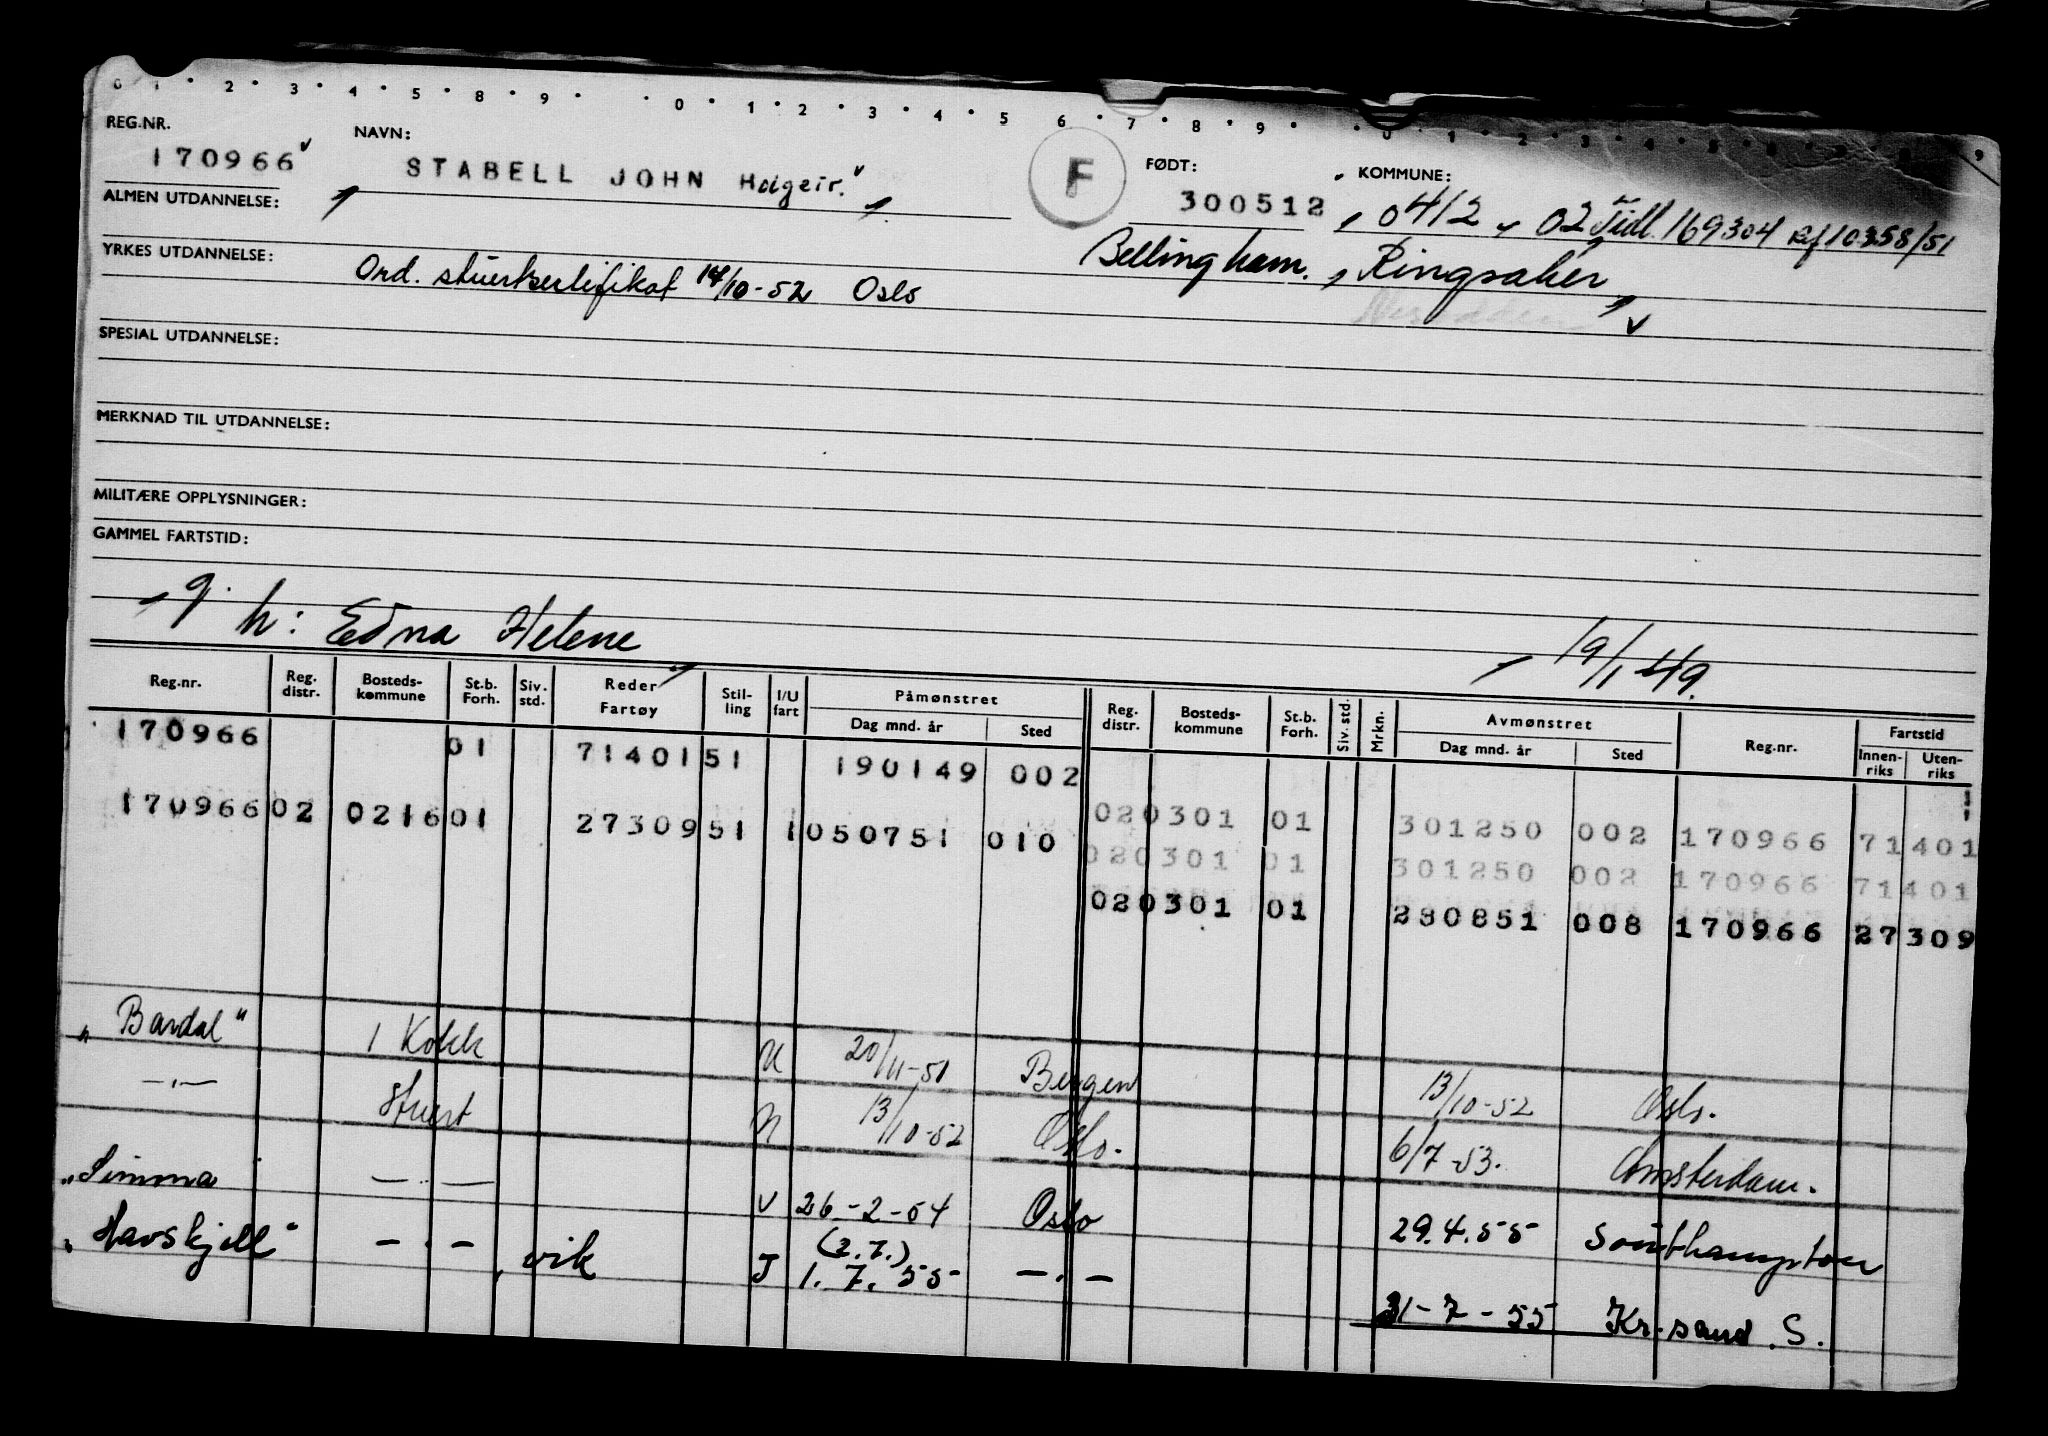 0 1 2 3 4 5 8 9 0 1 2 3 4 5 6 7 8 9 0 1 2 3 4 5 9
REG.NR. NAVN: F FØDT: KOMMUNE:
170966 STABELL JOHN Holgeir. 300512 0412 02 Tidl. 169304 Rf 10358/51
ALMEN UTDANNELSE:
YRKES UTDANNELSE: Ord. stuertsertifikat 14/10-52 Oslo Bellingham. Ringsaker
Nesodden
SPESIAL UTDANNELSE:
MERKNAD TIL UTDANNELSE:
MILITÆRE OPPLYSNINGER:
GAMMEL FARTSTID:
g. h: Edna Helene 19/1 49.
Reg.nr. Reg. distr. Bosteds-kommune St.b. Forh. Siv. std. Reder Fartøy Stil-ling I/U fart Påmønstret Dag mnd. år Sted Reg. distr. Bosteds-kommune St.b. Forh. Siv. std. Mrkn. Avmønstret Dag mnd. år Sted Reg.nr. Fartstid Innen-riks Uten-riks
170966 01 71401 51 190149 002
020301 01 301250 002 170966 71401
170966 02 0216 01 27309 51 1 050751 010
020301 01 301250 002 170966 71401
020301 01 280851 008 170966 27309
"Bardal" 1 Kokk U 20/11-51 Bergen 13/10-52 Oslo.
—"— Stuert U 13/10-52 Oslo. 6/7-53. Amsterdam.
"Simma — . — U 26-2-54 Oslo 29.4.55 Southampton
(2.7.)
"Havskjell" — . — , vik J 1.7.55 — . — 31-7-55 Kr.sand .S.